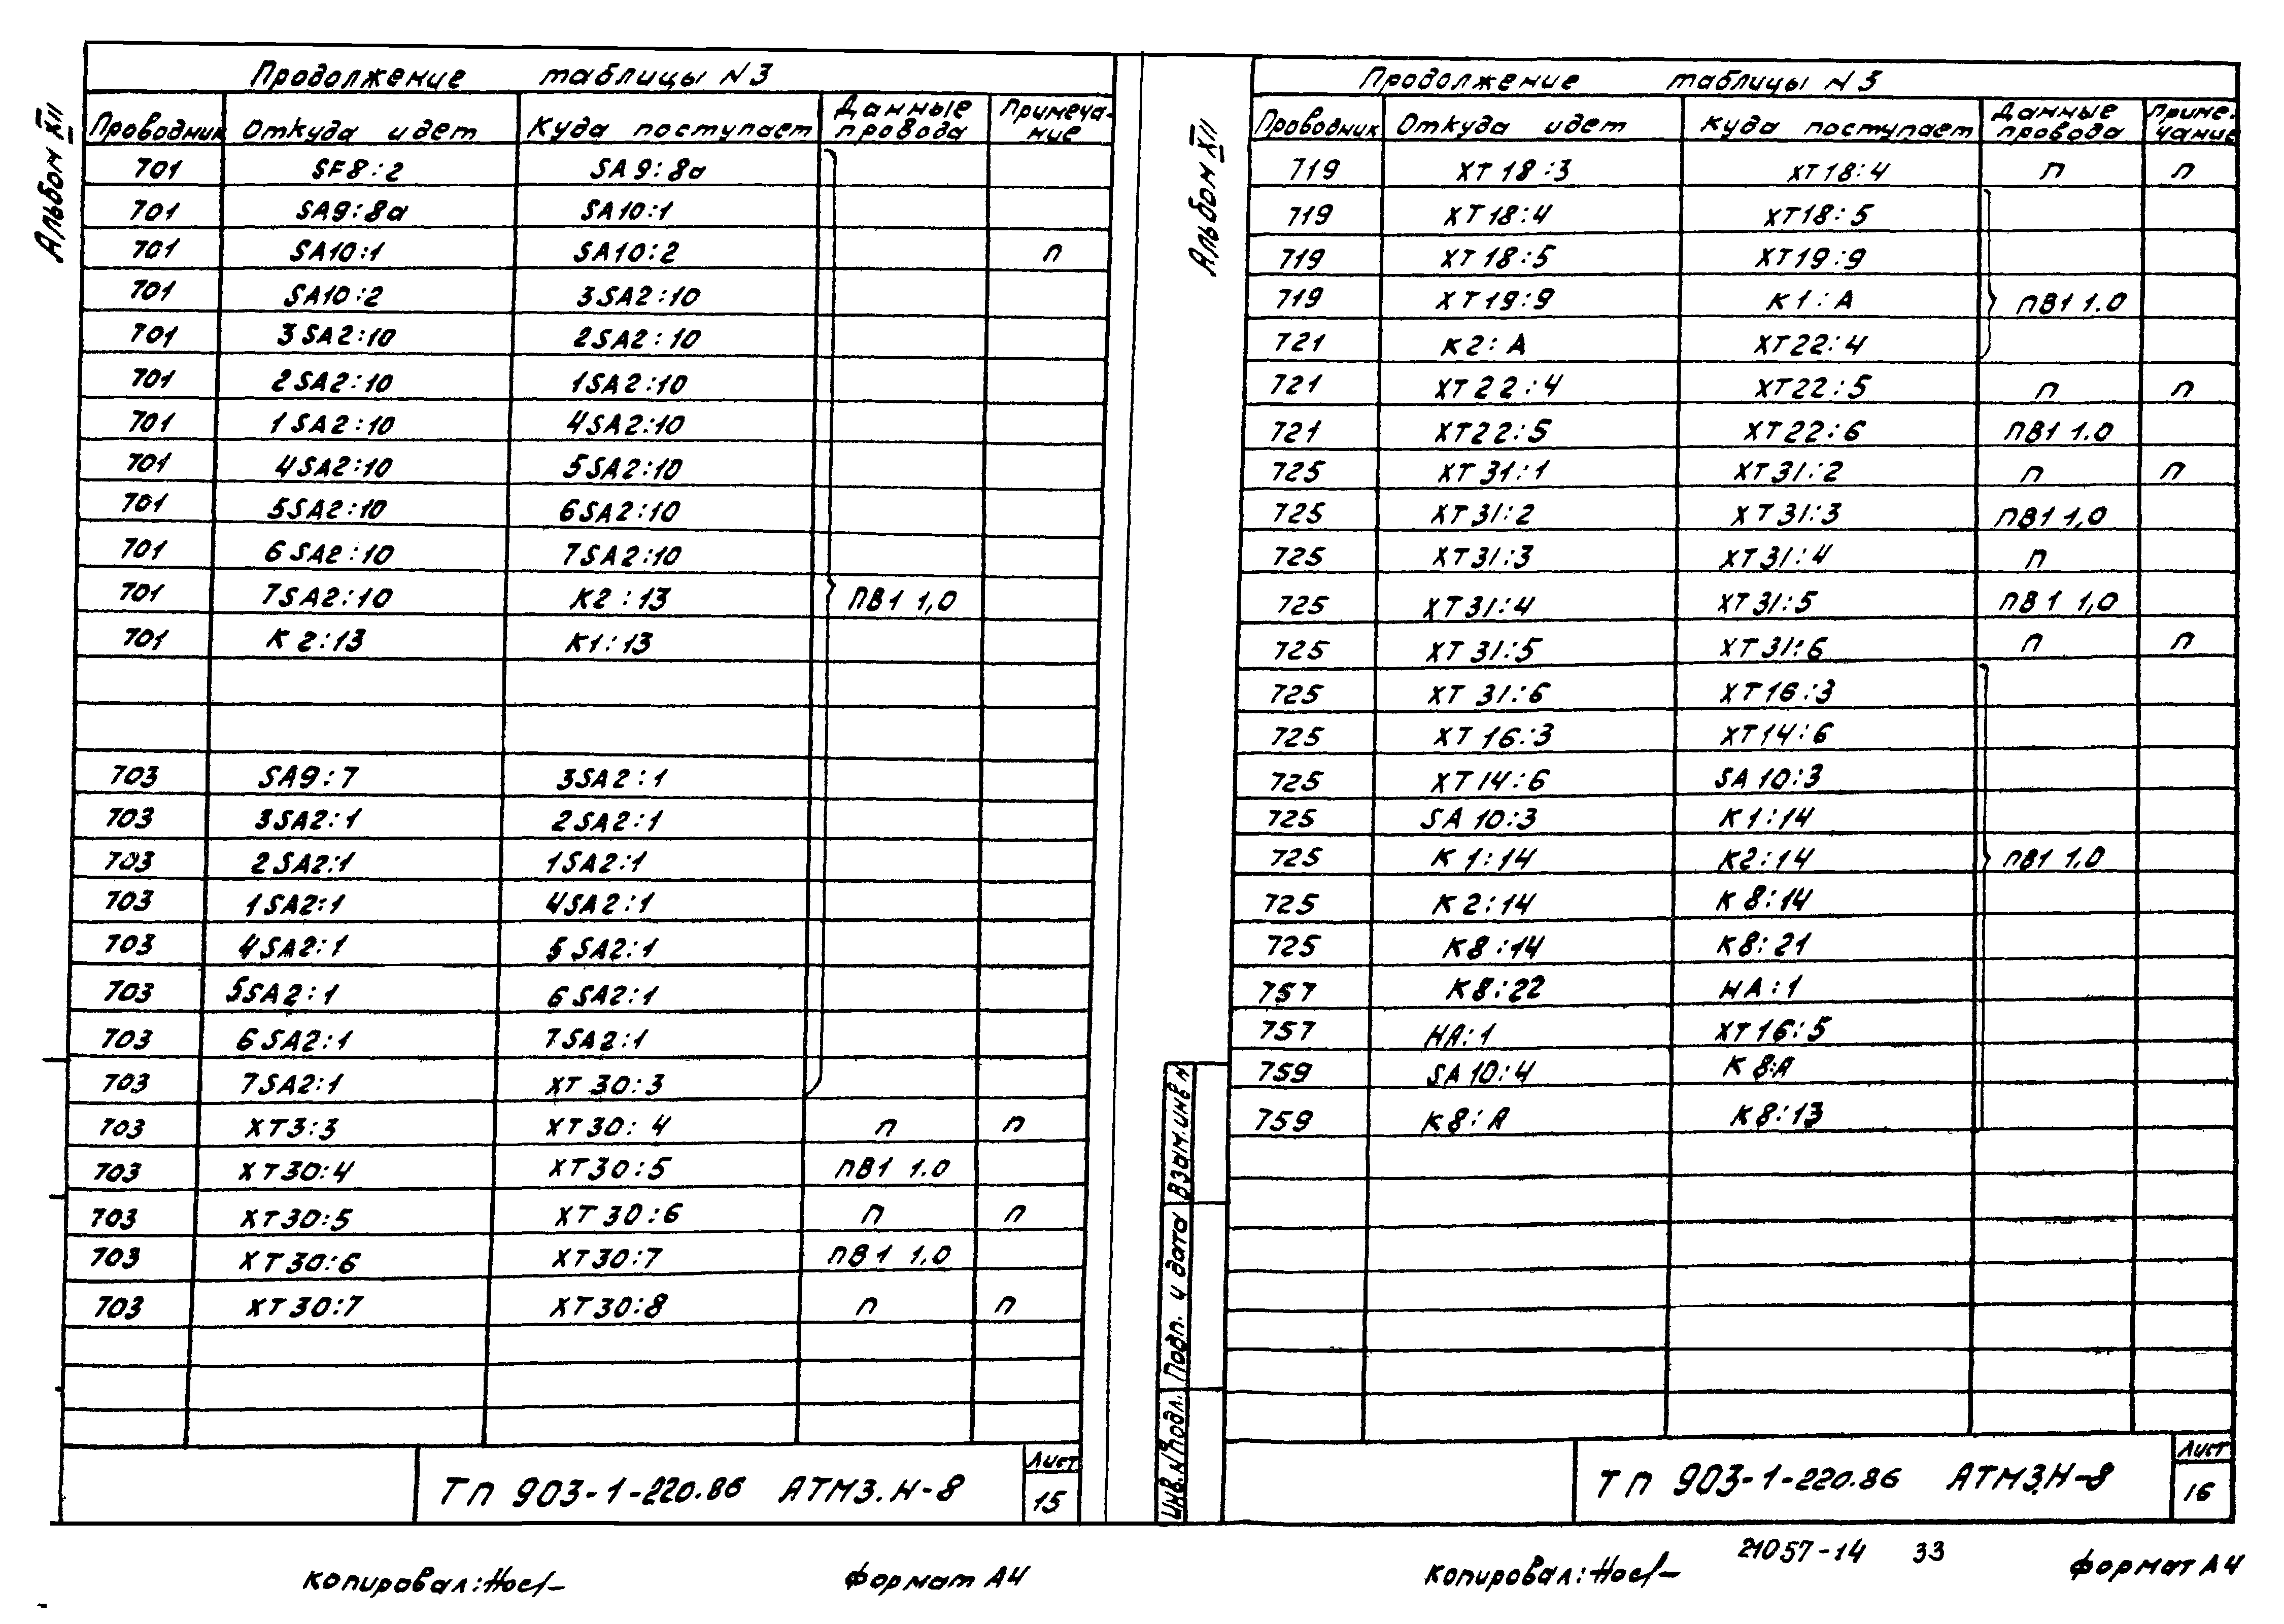 Альбом XII
Продолжение таблицы N3
Проводник Откуда идет Куда поступает Данные провода Примечание
701 SF8:2 SA9:8а
701 SA9:8а SA10:1
701 SA10:1 SA10:2 п
701 SA10:2 3SA2:10
701 3SA2:10 2SA2:10
701 2SA2:10 1SA2:10
701 1SA2:10 4SA2:10
701 4SA2:10 5SA2:10
701 5SA2:10 6SA2:10
701 6SA2:10 7SA2:10
701 7SA2:10 К2:13 ПВ1 1,0
701 К2:13 К1:13
703 SA9:7 3SA2:1
703 3SA2:1 2SA2:1
703 2SA2:1 1SA2:1
703 1SA2:1 4SA2:1
703 4SA2:1 5SA2:1
703 5SA2:1 6SA2:1
703 6SA2:1 7SA2:1
703 7SA2:1 XT30:3
703 XT3:3 XT30:4 п п
703 XT30:4 XT30:5 ПВ1 1.0
703 XT30:5 XT30:6 п п
703 XT30:6 XT30:7 ПВ1 1.0
703 XT30:7 XT30:8 п п
ТП 903-1-220.86 АТМ3.Н-8
Лист
15
Копировал:
Формат А4
Альбом XII
Продолжение таблицы N3
Проводник Откуда идет Куда поступает Данные провода Примечание
719 XT18:3 XT18:4 п п
719 XT18:4 XT18:5
719 XT18:5 XT19:9
719 XT19:9 К1:А ПВ1 1.0
721 К2:А XT22:4
721 XT22:4 XT22:5 п п
721 XT22:5 XT22:6 ПВ1 1.0
725 XT31:1 XT31:2 п п
725 XT31:2 XT31:3 ПВ1 1,0
725 XT31:3 XT31:4 п
725 XT31:4 XT31:5 ПВ1 1,0
725 XT31:5 XT31:6 п п
725 XT31:6 XT16:3
725 XT16:3 XT14:6
725 XT14:6 SA10:3
725 SA10:3 К1:14
725 К1:14 К2:14 ПВ1 1.0
725 К2:14 К8:14
725 К8:14 К8:21
757 К8:22 НА:1
757 НА:1 XT16:5
759 SA10:4 К8:А
759 К8:А К8:13
Взам.инв N
Подп. и дата
Инв.N подл.
ТП 903-1-220.86 АТМ3.Н-8
Лист
16
21057-14 33
Копировал:
Формат А4